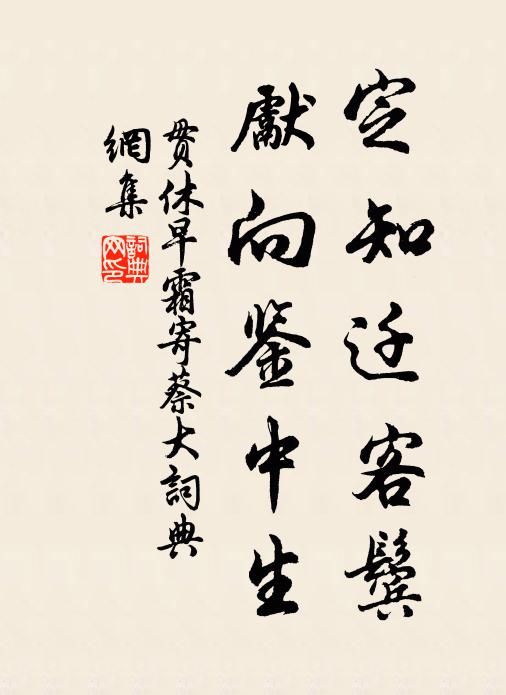 定知迁客鬓
獻向鉴中生
贯休早霜寄蔡大詞典
網集
詞典
网印